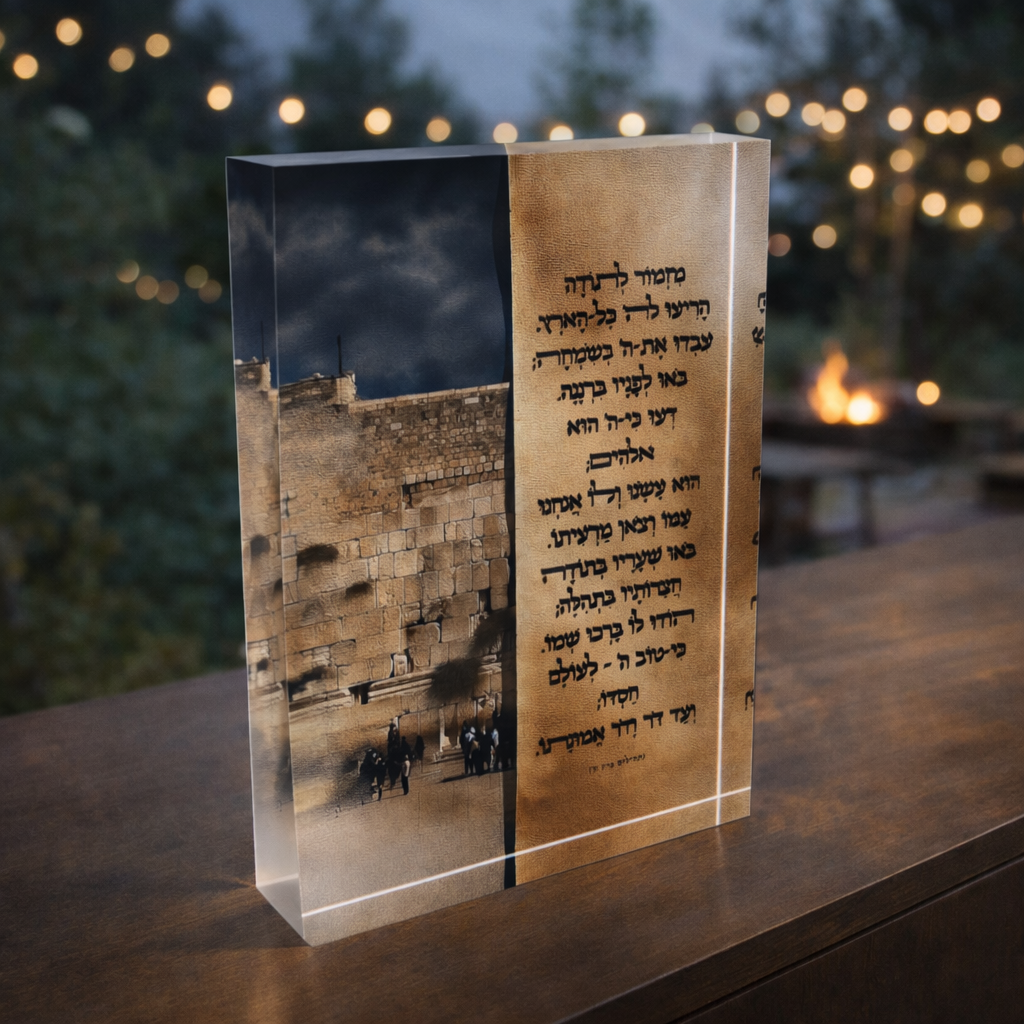 מִזְמוֹר לְתוֹדָה
הָרִיעוּ לַה' כָּל-הָאָרֶץ.
עִבְדוּ אֶת-ה' בְּשִׂמְחָה;
בֹּאוּ לְפָנָיו בִּרְנָנָה.
דְּעוּ כִּי-ה' הוּא
אֱלֹהִים;
הוּא עָשָׂנוּ וְלוֹ אֲנַחְנוּ
עַמּוֹ וְצֹאן מַרְעִיתוֹ.
בֹּאוּ שְׁעָרָיו בְּתוֹדָה
חֲצֵרֹתָיו בִּתְהִלָּה;
הוֹדוּ לוֹ בָּרְכוּ שְׁמוֹ.
כִּי-טוֹב ה' - לְעוֹלָם
חַסְדּוֹ;
וְעַד דֹּר וָדֹר אֱמוּנָתוֹ.